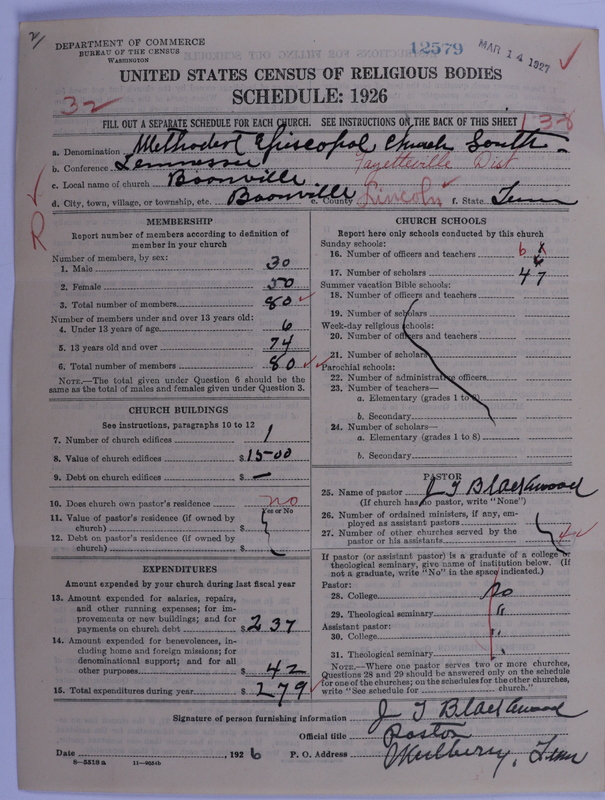 DEPARTMENT OF COMMERCE
BUREAU OF THE CENSUS
WASHINGTON
12579
MAR 14 1927
UNITED STATES CENSUS OF RELIGIOUS BODIES
SCHEDULE: 1926
32
FILL OUT A SEPARATE SCHEDULE FOR EACH CHURCH. SEE INSTRUCTIONS ON THE BACK OF THIS SHEET
138
a. Denomination Methodist Episcopal Church South
b. Conference Tennessee Fayetteville Dist
c. Local name of church Boonville
d. City, town, village, or township, etc. Boonville e. County Lincoln f. State Tenn
R
MEMBERSHIP
Report number of members according to definition of
member in your church
Number of members, by sex:
1. Male 30
2. Female 50
3. Total number of members 80
Number of members under and over 13 years old:
4. Under 13 years of age 6
5. 13 years old and over 74
6. Total number of members 80
NOTE.—The total given under Question 6 should be
the same as the total of males and females given under Question 3.
CHURCH BUILDINGS
See instructions, paragraphs 10 to 12
7. Number of church edifices 1
8. Value of church edifices $ 1500
9. Debt on church edifices $ —
10. Does church own pastor's residence no
Yes or No
11. Value of pastor's residence (if owned by
church) $
12. Debt on pastor's residence (if owned by
church) $
EXPENDITURES
Amount expended by your church during last fiscal year
13. Amount expended for salaries, repairs,
and other running expenses; for im-
provements or new buildings; and for
payments on church debt $ 237
14. Amount expended for benevolences, in-
cluding home and foreign missions; for
denominational support; and for all
other purposes $ 42
15. Total expenditures during year $ 279
CHURCH SCHOOLS
Report here only schools conducted by this church
Sunday schools:
16. Number of officers and teachers 6
17. Number of scholars 47
Summer vacation Bible schools:
18. Number of officers and teachers
19. Number of scholars
Week-day religious schools:
20. Number of officers and teachers
21. Number of scholars
Parochial schools:
22. Number of administrative officers
23. Number of teachers—
a. Elementary (grades 1 to 8)
b. Secondary
24. Number of scholars—
a. Elementary (grades 1 to 8)
b. Secondary
PASTOR
25. Name of pastor J T Blackwood
(If church has no pastor, write "None")
26. Number of ordained ministers, if any, em-
ployed as assistant pastors
27. Number of other churches served by the
pastor or his assistants
If pastor (or assistant pastor) is a graduate of a college or
theological seminary, give name of institution below. (If
not a graduate, write "No" in the space indicated.)
Pastor:
28. College No
29. Theological seminary "
Assistant pastor:
30. College "
31. Theological seminary "
NOTE.—Where one pastor serves two or more churches,
Questions 28 and 29 should be answered only on the schedule
for one of the churches; on the schedules for the other churches,
write "See schedule for church."
Signature of person furnishing information J T Blackwood
Official title Pastor
Date , 1926 P. O. Address Mulberry, Tenn
8—5518a 11—9664b